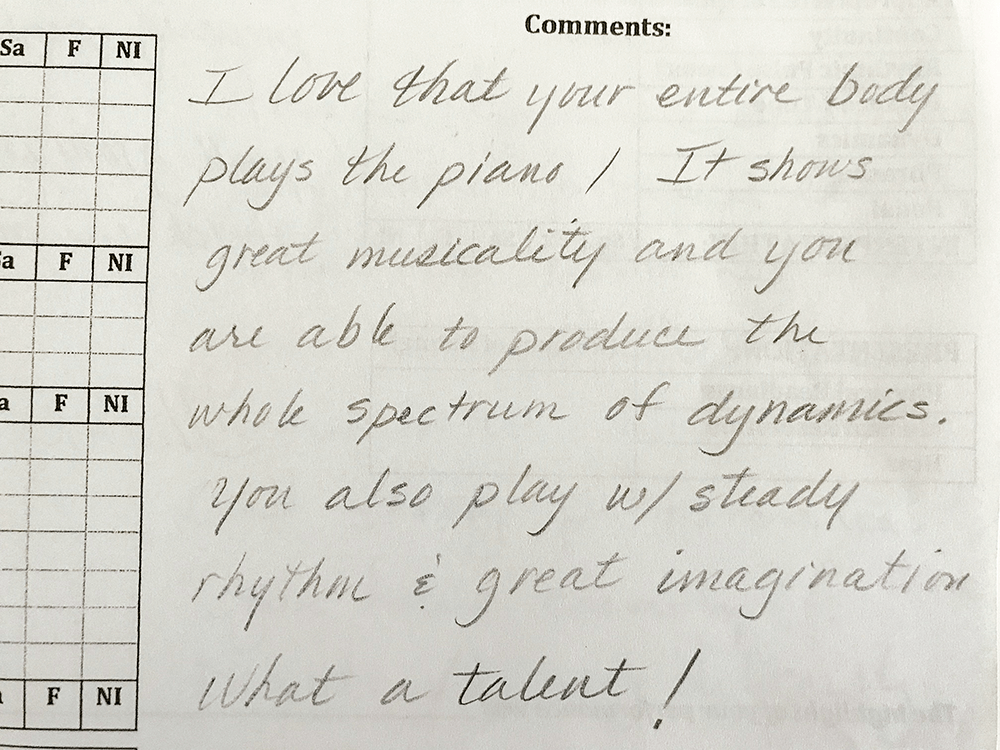 Comments:
Sa F NI
I love that your entire body
plays the piano! It shows
great musicality and you
F NI
are able to produce the
whole spectrum of dynamics.
F NI
You also play w/ steady
rhythm & great imagination
What a talent!
F NI